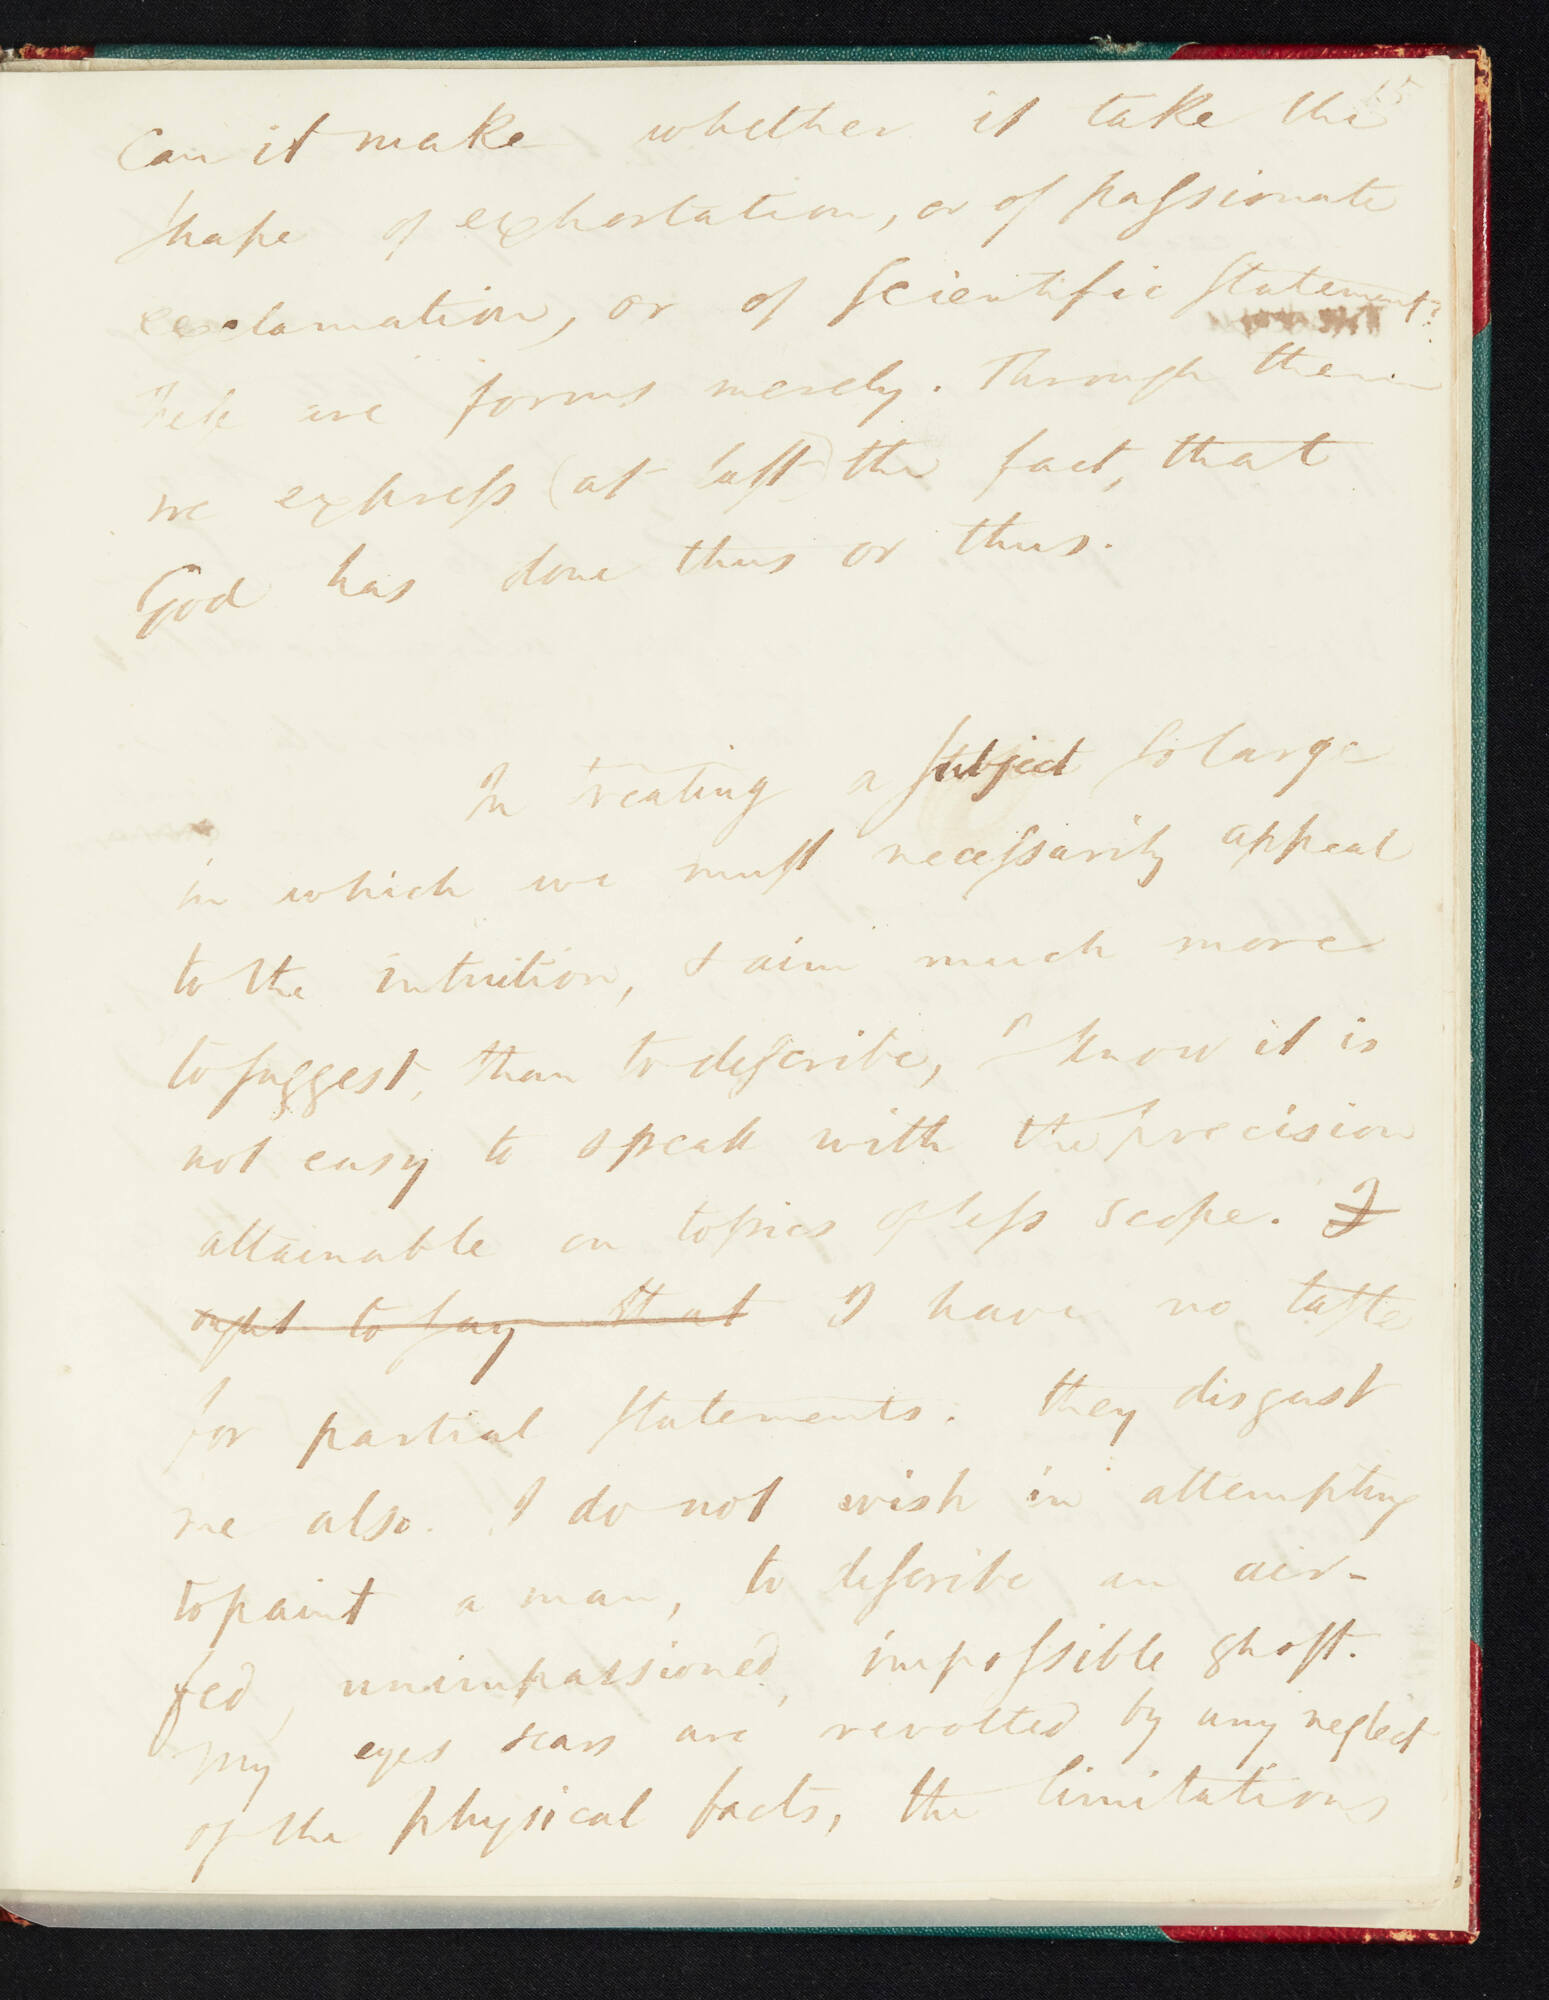 15
Can it make whether it take the
shape of exhortation, or of passionate
exclamation, or of scientific statement?
These are forms merely. Through them
we express (at last) the fact, that
God has done thus or thus.
In treating a subject so large
in which we must necessarily appeal
to the intuition, & aim much more
to suggest, than to describe, I know it is
not easy to speak with the precision
attainable on topics of less scope. I
ought to say that I have no taste
for partial statements. they disgust
me also. I do not wish in attempting
to paint a man, to describe an air-
fed, unimpassioned, impossible ghost.
My eyes & ears are revolted by any neglect
of the physical facts, the limitations